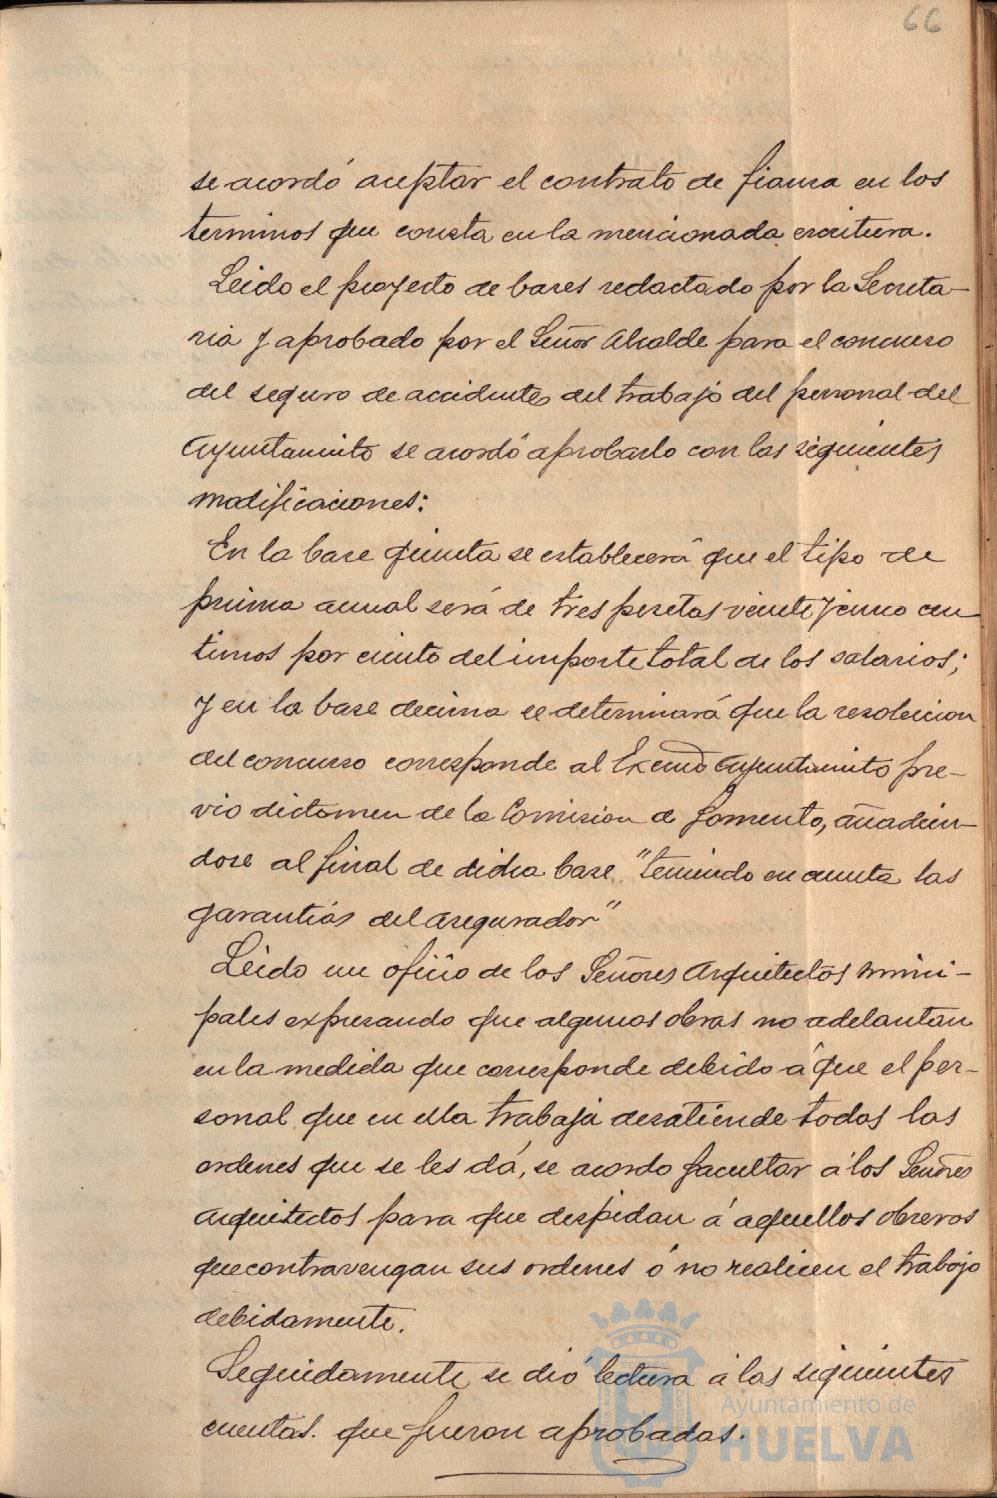 66
se acordó aceptar el contrato de fianza en los
terminos que consta en la mencionada escritura.
Leido el proyecto de bases redactado por la Secreta-
ria y aprobado por el Señor Alcalde para el concurso
del seguro de accidentes del trabajo del personal del
Ayuntamiento se acordó aprobarlo con las siguientes
modificaciones:
En la base quinta se establecerá que el tipo de
prima anual será de tres pesetas veinte y cinco cen
timos por ciento del importe total de los salarios;
y en la base decima se determinará que la resolucion
del concurso corresponde al Excmo Ayuntamiento pre-
vio dictamen de la Comision de Fomento, añadien-
dose al final de dicha base "teniendo en cuenta las
garantias del asegurador"
Leido un oficio de los Señores Arquitectos muni-
pales expresando que algunas obras no adelantan
en la medida que corresponde debido á que el per-
sonal que en ella trabaja desatiende todas las
ordenes que se les dá, se acordo facultar á los Señores
Arquitectos para que despidan á aquellos obreros
que contravengan sus ordenes ó no realicen el trabajo
debidamente.
Seguidamente se dió lectura á las siguientes
cuentas. que fueron aprobadas.
Ayuntamiento de
HUELVA